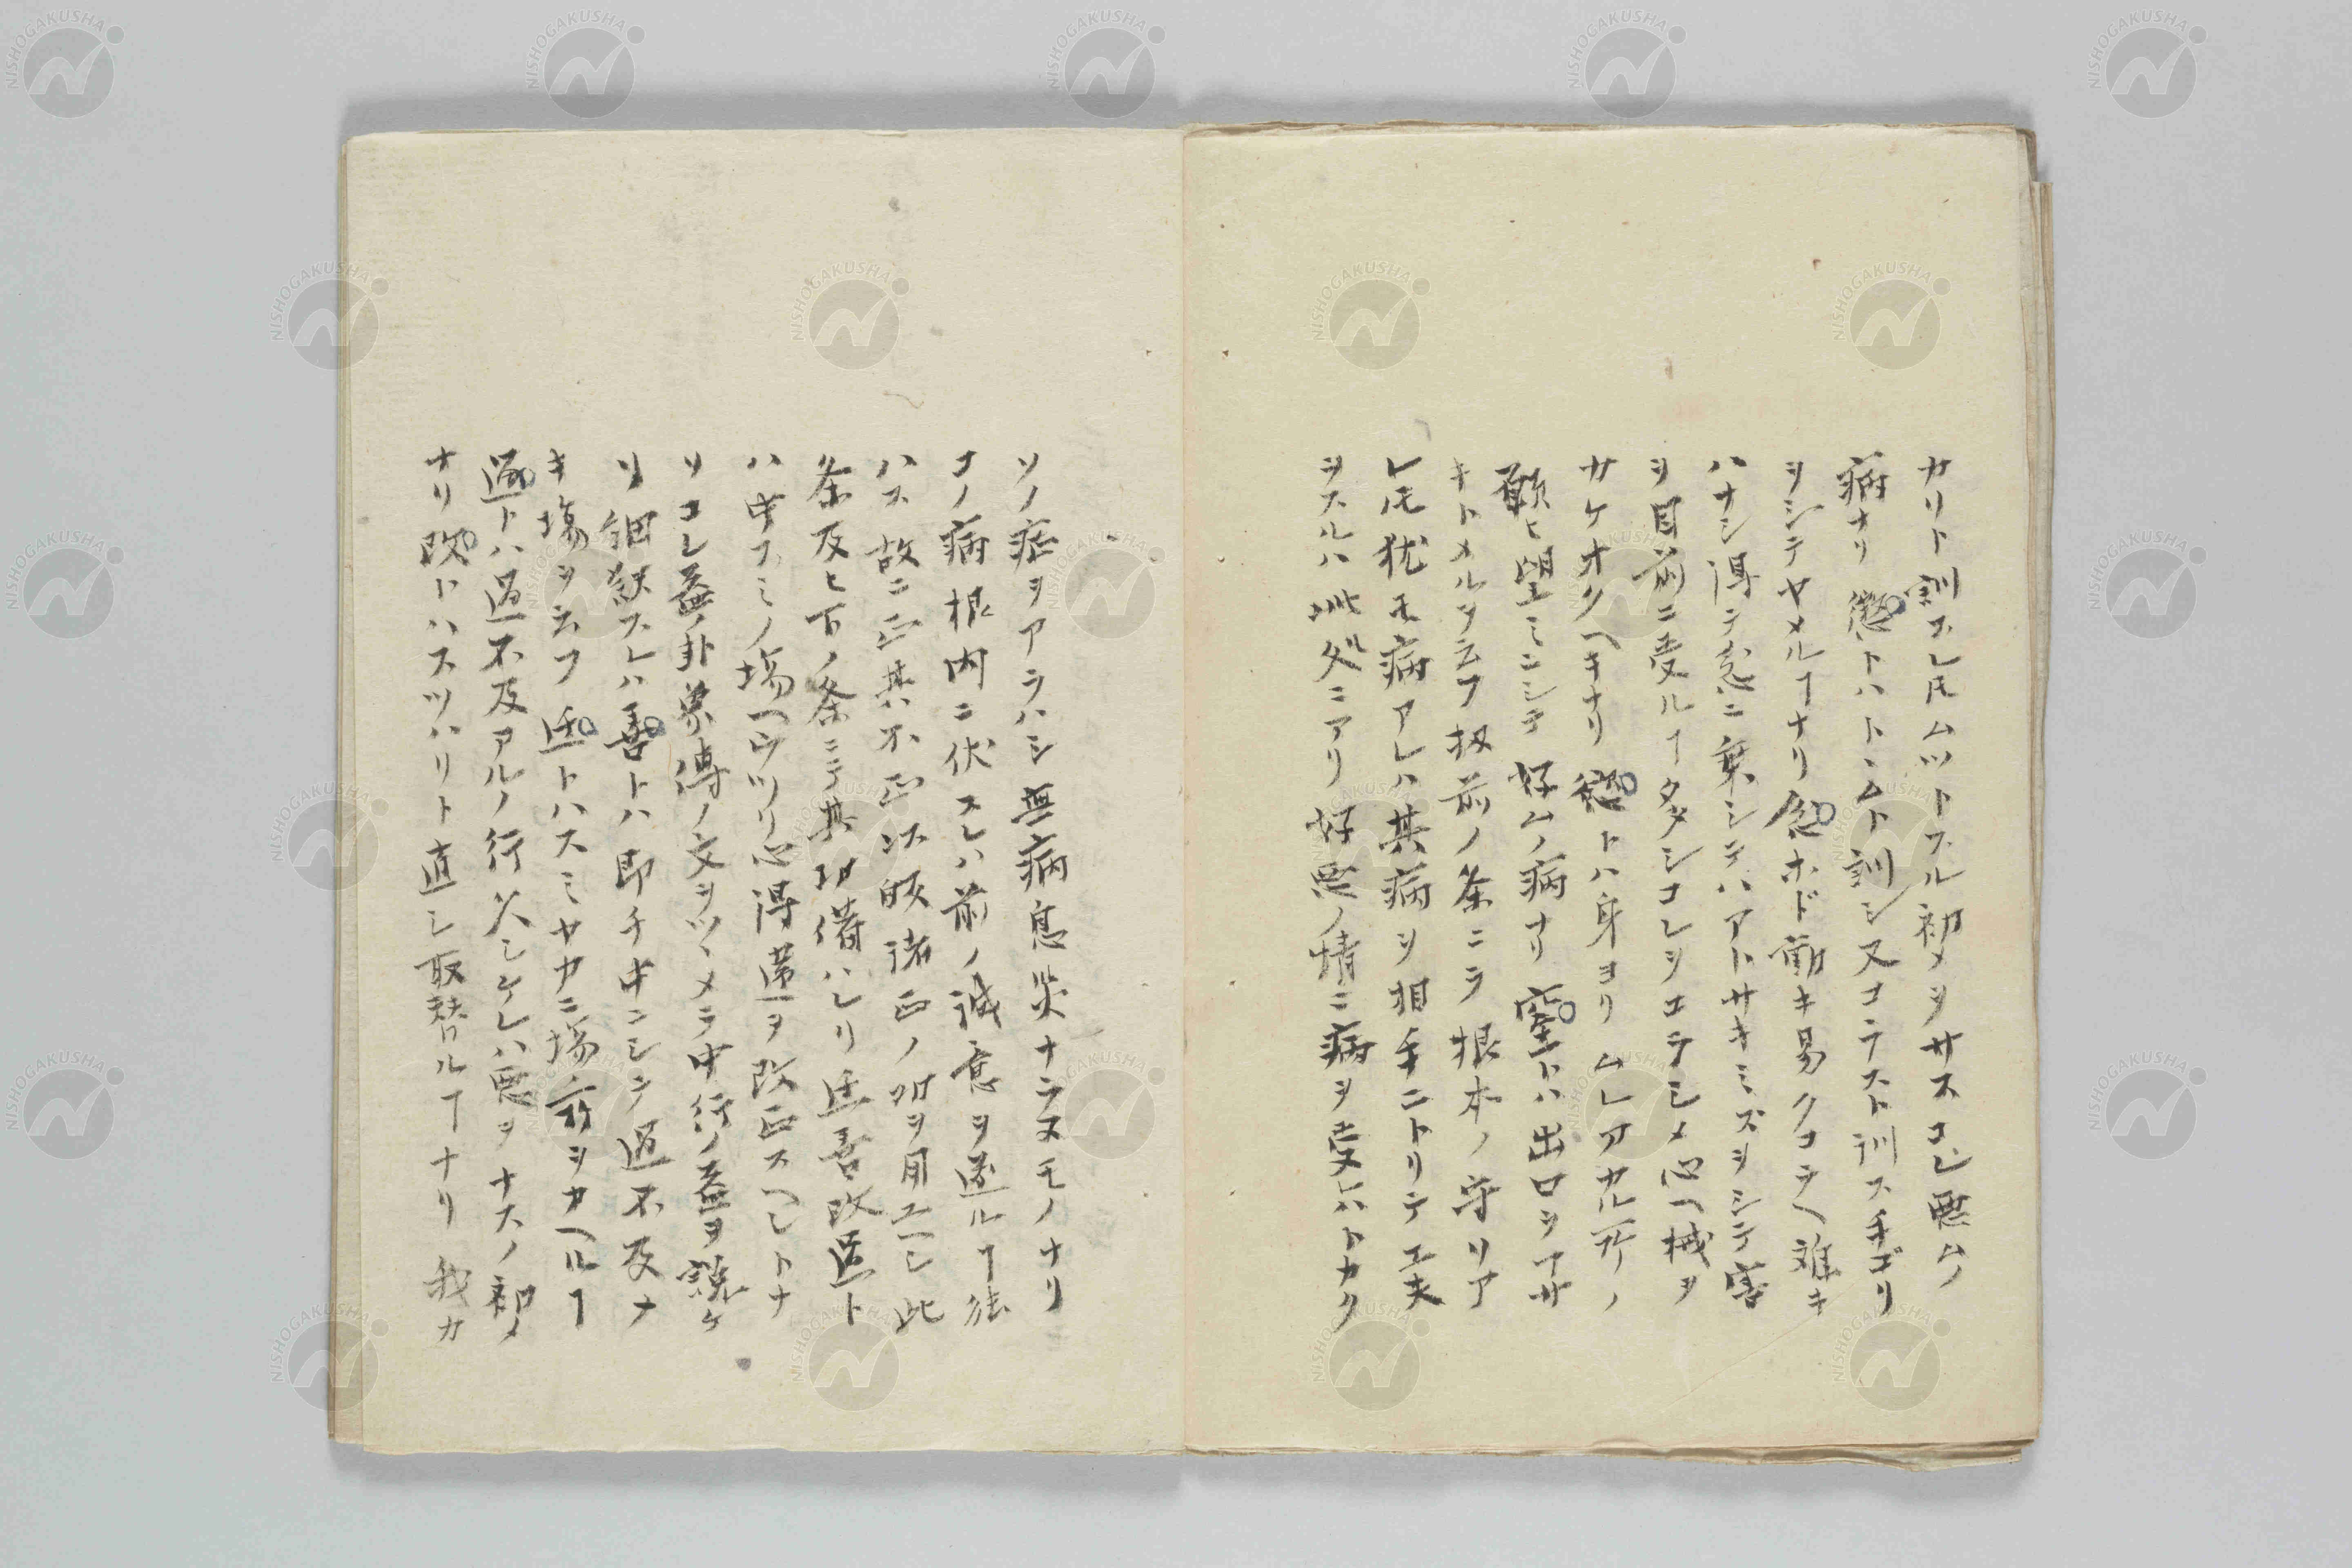 カリト訓スレ𪜈ムツトスル初メヲサスコレ悪ムノ
病ナリ懲トハトヽムト訓シ又コラスト訓ス手ゴリ
ヲシテヤメルヿナリ忿ホド動キ易クコラヘ難キ
ハナシ得テ忿ニ乗シテハアトサキミズヲシテ害
ヲ目前ニ受ルヿタタシコレヲコラシメ心ヘ械ヲ
サケオクヘキナリ慾トハ身ヨリムレワカル所ノ
願ヒ望ミニシテ好ムノ病ナリ窒トハ出ロヲフサ
キトメルヲ云フ扨前ノ条ニテ根本ノ守リア
レ𪜈犹モ病アレハ其病ヲ相手ニトリテ工夫
ヲスルハ此処ニアリ好悪ノ情ニ病ヲ受レハトカク
ソノ症ヲアラハシ無病息災ナラヌモノナリ
コノ病根内ニ伏スレハ前ノ誠意ヲ遂ルヿ能
ハス故ニ正其不正以皈諸正ノ功ヲ用ユヘシ此
条及ヒ下ノ条ニテ其功備ハレリ迁善改過ト
ハ中スミノ場ヘウツリ心得違ヲ改正スヘシトナ
リコレ益ノ卦象傳ノ文ヲツヽメテ中行ノ益ヲ説ケ
リ細説スレハ善トハ即チ中ニシテ過不及ナ
キ場ヲ云フ迁トハスミヤカニ場所ヲカヘルヿ
過トハ過不及アルノ行久シケレハ悪ヲナスノ初メ
ナリ改トハスツハリト直シ取替ルヿナリ我カ